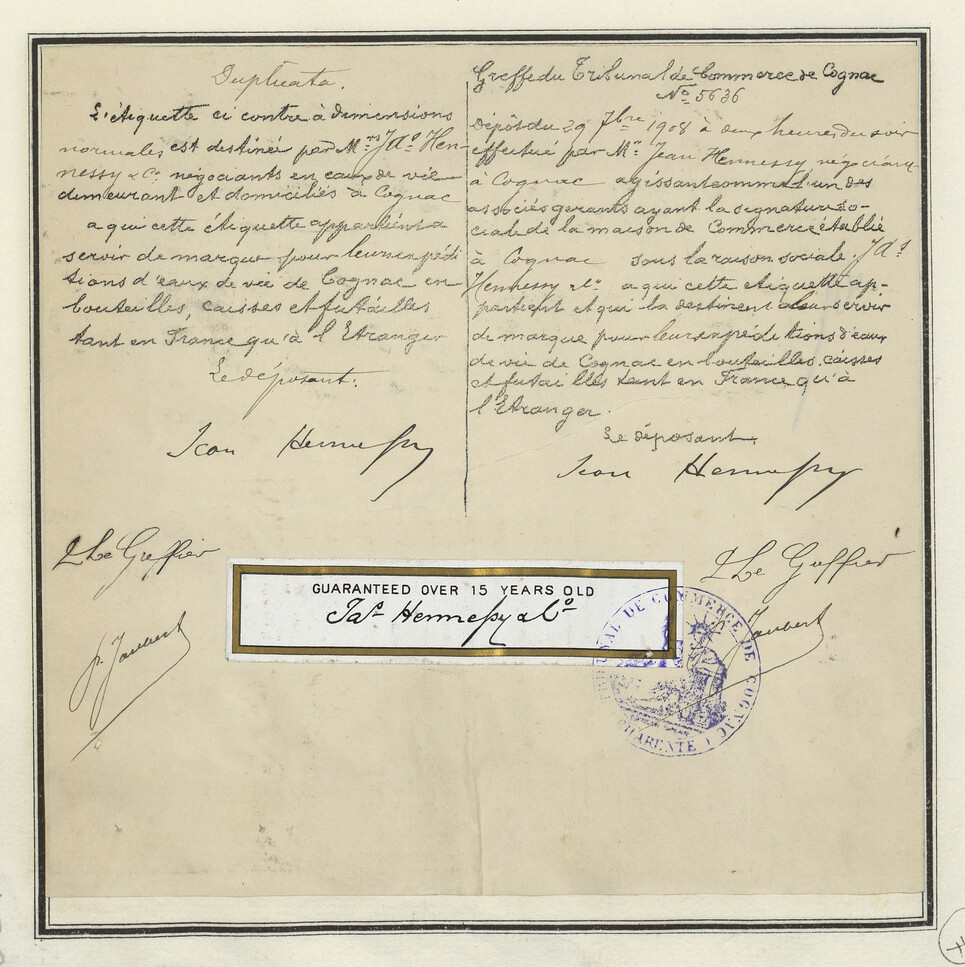 Duplicata.
L'étiquette ci contre à dimensions
normales est destinée par Mrs Jas Hen-
nessy & Co négociants en eaux de vie
demeurant et domiciliés à Cognac
a qui cette étiquette appartient a
servir de marque pour leurs expédi
tions d'eaux de vie de Cognac en
bouteilles, caisses et futailles
tant en France qu'à l'Etranger
Le déposant.
Jean Hennessy
P Le Greffier
p. Jaubert
Greffe du Tribunal de Commerce de Cognac
No 5636
Dépôt du 29 7bre 1908 à deux heures du soir
effectué par Mr Jean Hennessy négociant
à Cognac agissant comme l'un des
associés gerants ayant la signature so-
ciale de la maison de Commerce établie
à Cognac sous la raison sociale: Jas
Hennessy & Co a qui cette etiquette ap-
partient et qui la destinent a leur servir
de marque pour leurs expeditions d'eaux
de vie de Cognac en bouteilles, caisses
et futailles tant en France qu'à
l'Etranger.
Le déposant
Jean Hennessy
P Le Greffier
Jaubert
GUARANTEED OVER 15 YEARS OLD
Jas Hennessy & Co
TRIBUNAL DE COMMERCE DE COGNAC
CHARENTE